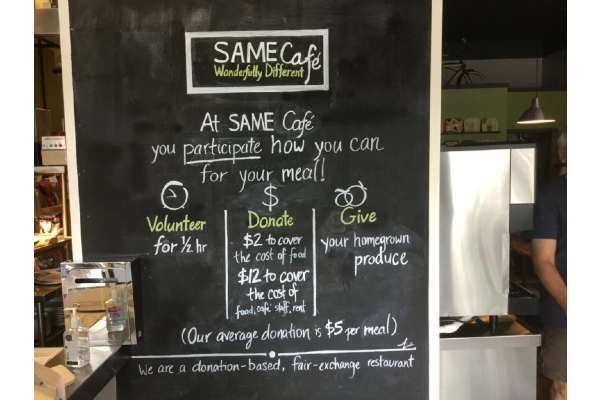 SAME Café
Wonderfully Different
At SAME Café
you participate how you can
for your meal!
Volunteer
for ½ hr
Donate
$2 to cover
the cost of food
$12 to cover
the cost of
food, café staff, rent
Give
your homegrown
produce
(Our average donation is $5 per meal)
We are a donation-based, fair-exchange restaurant